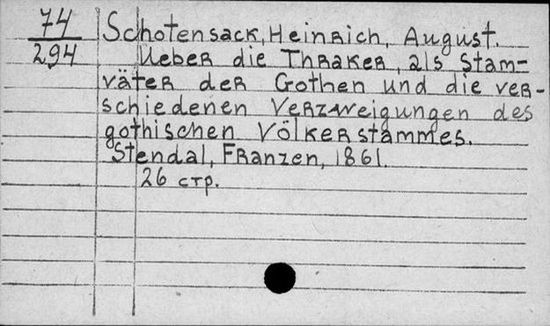 74
294
Schotensack, Heinrich, August.
Ueber die Thraker, als Stam-
väter der Gothen und die ver-
schiedenen Verzweigungen des
gothischen Völkerstammes.
Stendal, Franzen, 1861.
26 стр.